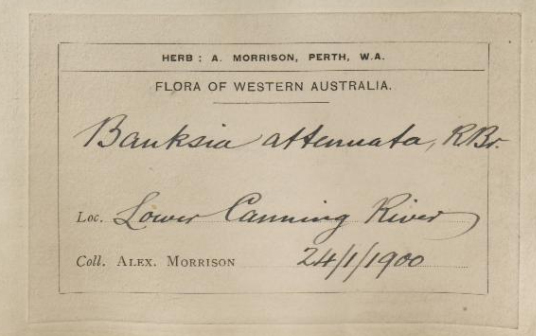 HERB : A. MORRISON, PERTH, W.A.
FLORA OF WESTERN AUSTRALIA.
Banksia attenuata, R.Br.
Loc. Lower Canning River
Coll. ALEX. MORRISON 24/1/1900